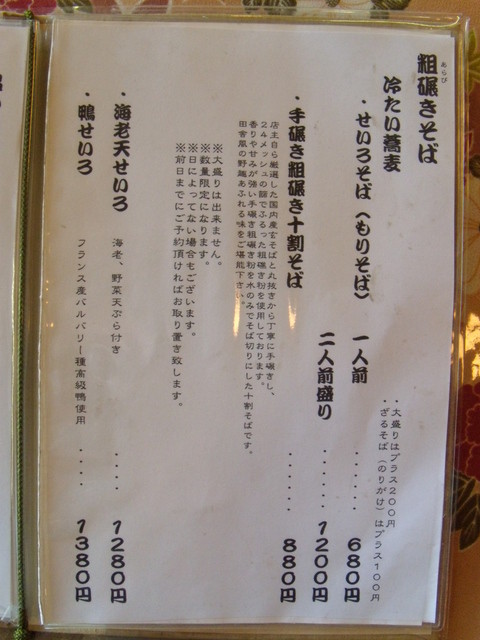 粗碾きそば
あらび
冷たい蕎麦
・せいろそば（もりそば） 一人前 ・・・・・・ 680円
・大盛りはプラス200円
ざるそば（のりがけ）はプラス100円
二人前盛り ・・・・ 1200円
・手碾き粗碾き十割そば ・・・・・・ 880円
店主自ら厳選した国内産玄そばと丸抜きから丁寧に手碾きし、
24メッシュの篩でふるった粗碾き粉を使用しております。
香りや甘みが強い手碾き粗碾き粉を水のみでそば切りにした十割そばです。
田舎風の野趣あふれる味をご堪能下さい。
※大盛りは出来ません。
※数量限定になります。
※日によってない場合もございます。
※前日までにご予約頂ければお取り置き致します。
・海老天せいろ 海老、野菜天ぷら付き ・・・・ 1280円
・鴨せいろ フランス産バルバリー種高級鴨使用 ・・・・ 1380円